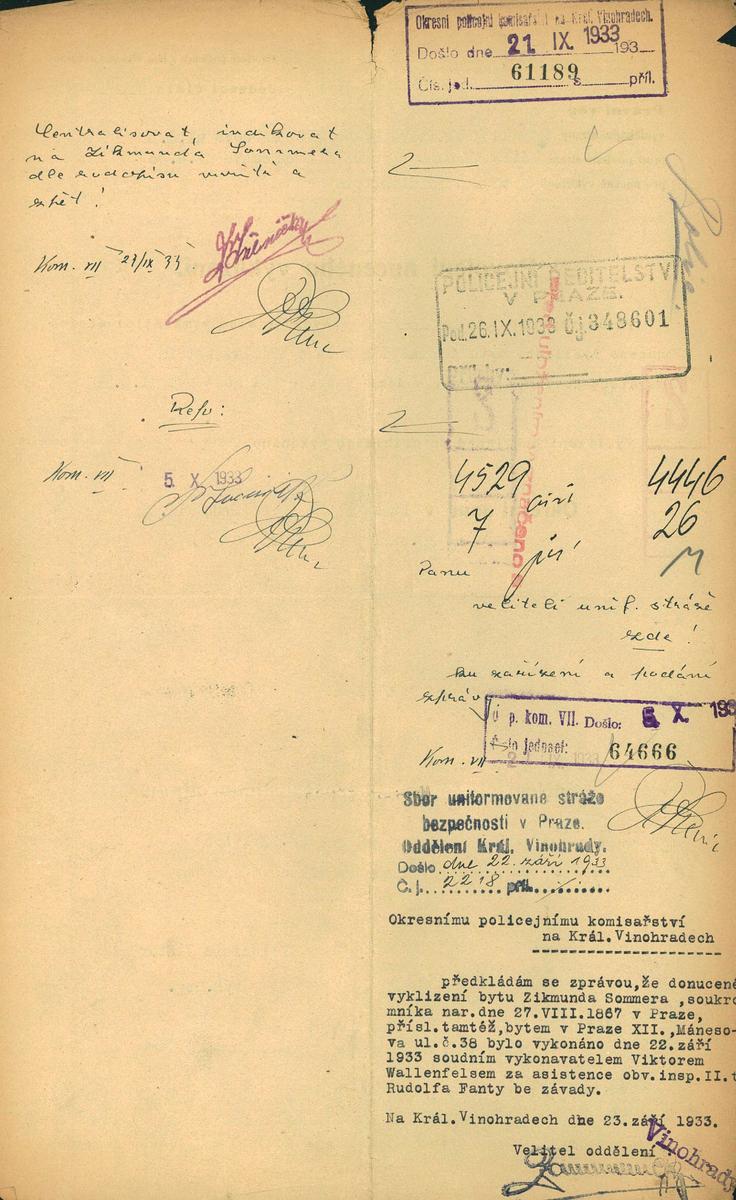 Okresní policejní komisařství na Král. Vinohradech.
Došlo dne 21 IX. 1933 193
Čís. jed. 61189 příl.
Centralisovat, indikovat
na Zikmunda Sommera
dle rodopisu a
zpět!
Kom. VII 27/IX 33
POLICEJNÍ ŘEDITELSTVÍ
V PRAZE.
Pod. 26. IX. 1933 Č.j. 348601
Přílohy:
Refer:
Kom. VII 5. X. 1933
4529 4446
7 26
Panu
veliteli unif. stráže
zde!
ku zařízení a podání
zpráv
O. p. kom. VII. Došlo: 5. X. 193
Číslo jednací: 64666
Kom. VII
Sbor uniformované stráže
bezpečnosti v Praze.
Oddělení Král. Vinohrady.
Došlo dne 22. září 1933
Č. j. 2218 příl.
Okresnímu policejnímu komisařství
na Král. Vinohradech
předkládám se zprávou,že donucené
vyklizení bytu Zikmunda Sommera ,soukro
mníka nar.dne 27.VIII.1867 v Praze,
přísl.tamtéž,bytem v Praze XII.,Máneso-
va ul.č.38 bylo vykonáno dne 22.září
1933 soudním vykonavatelem Viktorem
Wallenfelsem za asistence obv.insp.II.t
Rudolfa Fanty be závady.
Na Král.Vinohradech dne 23.září 1933.
Velitel oddělení
Vinohrady